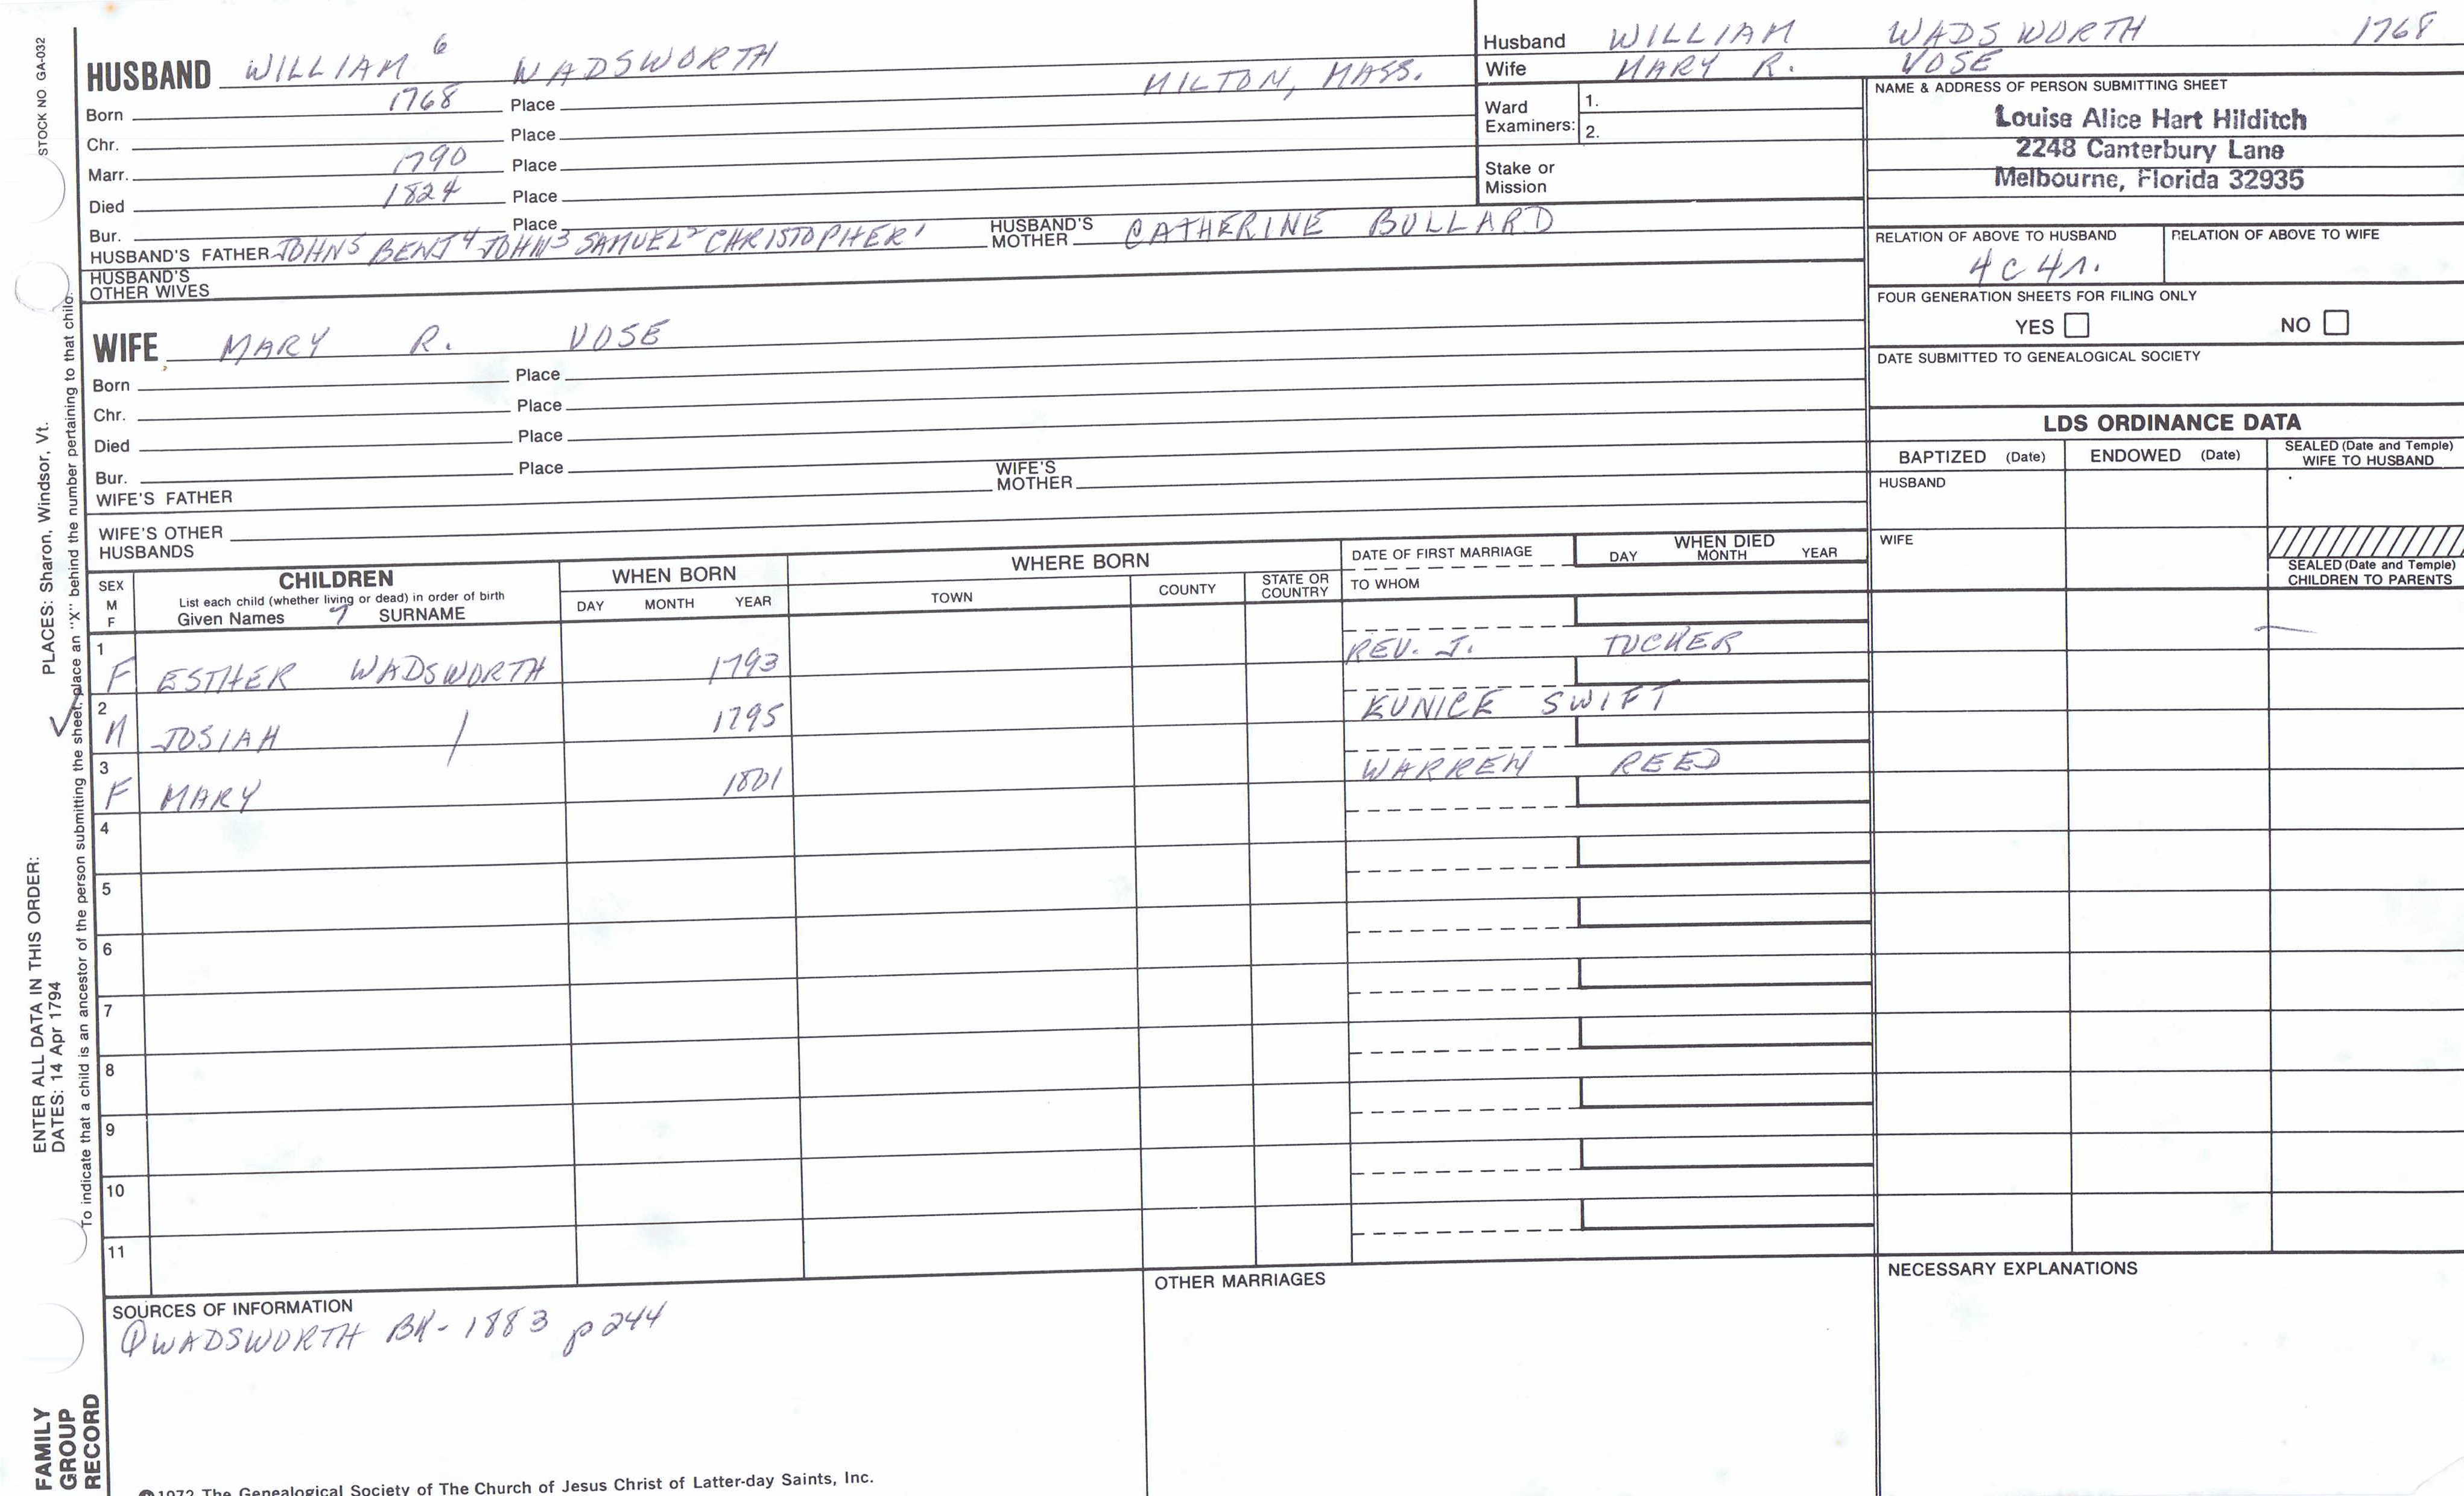 STOCK NO GA-032
PLACES: Sharon, Windsor, Vt.
ENTER ALL DATA IN THIS ORDER:
DATES: 14 Apr 1794
To indicate that a child is an ancestor of the person submitting the sheet, place an "X" behind the number pertaining to that child.
FAMILY
GROUP
RECORD
HUSBAND WILLIAM 6 WADSWORTH
Born 1768 Place MILTON, MASS.
Chr. Place
Marr. 1790 Place
Died 1824 Place
Bur. Place
HUSBAND'S FATHER JOHN5 BENJ4 JOHN3 SAMUEL2 CHRISTOPHER1 HUSBAND'S MOTHER CATHERINE BULLARD
HUSBAND'S
OTHER WIVES
WIFE MARY R. VOSE
Born Place
Chr. Place
Died Place
Bur. Place
WIFE'S FATHER WIFE'S MOTHER
WIFE'S OTHER
HUSBANDS
Husband WILLIAM WADSWORTH 1768
Wife MARY R. VOSE
Ward
Examiners:
1.
2.
Stake or
Mission
NAME & ADDRESS OF PERSON SUBMITTING SHEET
Louise Alice Hart Hilditch
2248 Canterbury Lane
Melbourne, Florida 32935
RELATION OF ABOVE TO HUSBAND RELATION OF ABOVE TO WIFE
4C4r.
FOUR GENERATION SHEETS FOR FILING ONLY
YES NO
DATE SUBMITTED TO GENEALOGICAL SOCIETY
LDS ORDINANCE DATA
BAPTIZED (Date) ENDOWED (Date) SEALED (Date and Temple)
WIFE TO HUSBAND
HUSBAND
WIFE
SEALED (Date and Temple)
CHILDREN TO PARENTS
SEX
M
F
CHILDREN
List each child (whether living or dead) in order of birth
Given Names 7 SURNAME
WHEN BORN
DAY MONTH YEAR
WHERE BORN
TOWN COUNTY STATE OR COUNTRY
DATE OF FIRST MARRIAGE
TO WHOM
WHEN DIED
DAY MONTH YEAR
1 F ESTHER WADSWORTH 1793 REV. J. TUCKER
2 M JOSIAH 1795 EUNICE SWIFT
3 F MARY 1801 WARREN REED
4
5
6
7
8
9
10
11
SOURCES OF INFORMATION
① WADSWORTH BK- 1883 p 244
OTHER MARRIAGES
NECESSARY EXPLANATIONS
©1972 The Genealogical Society of The Church of Jesus Christ of Latter-day Saints, Inc.